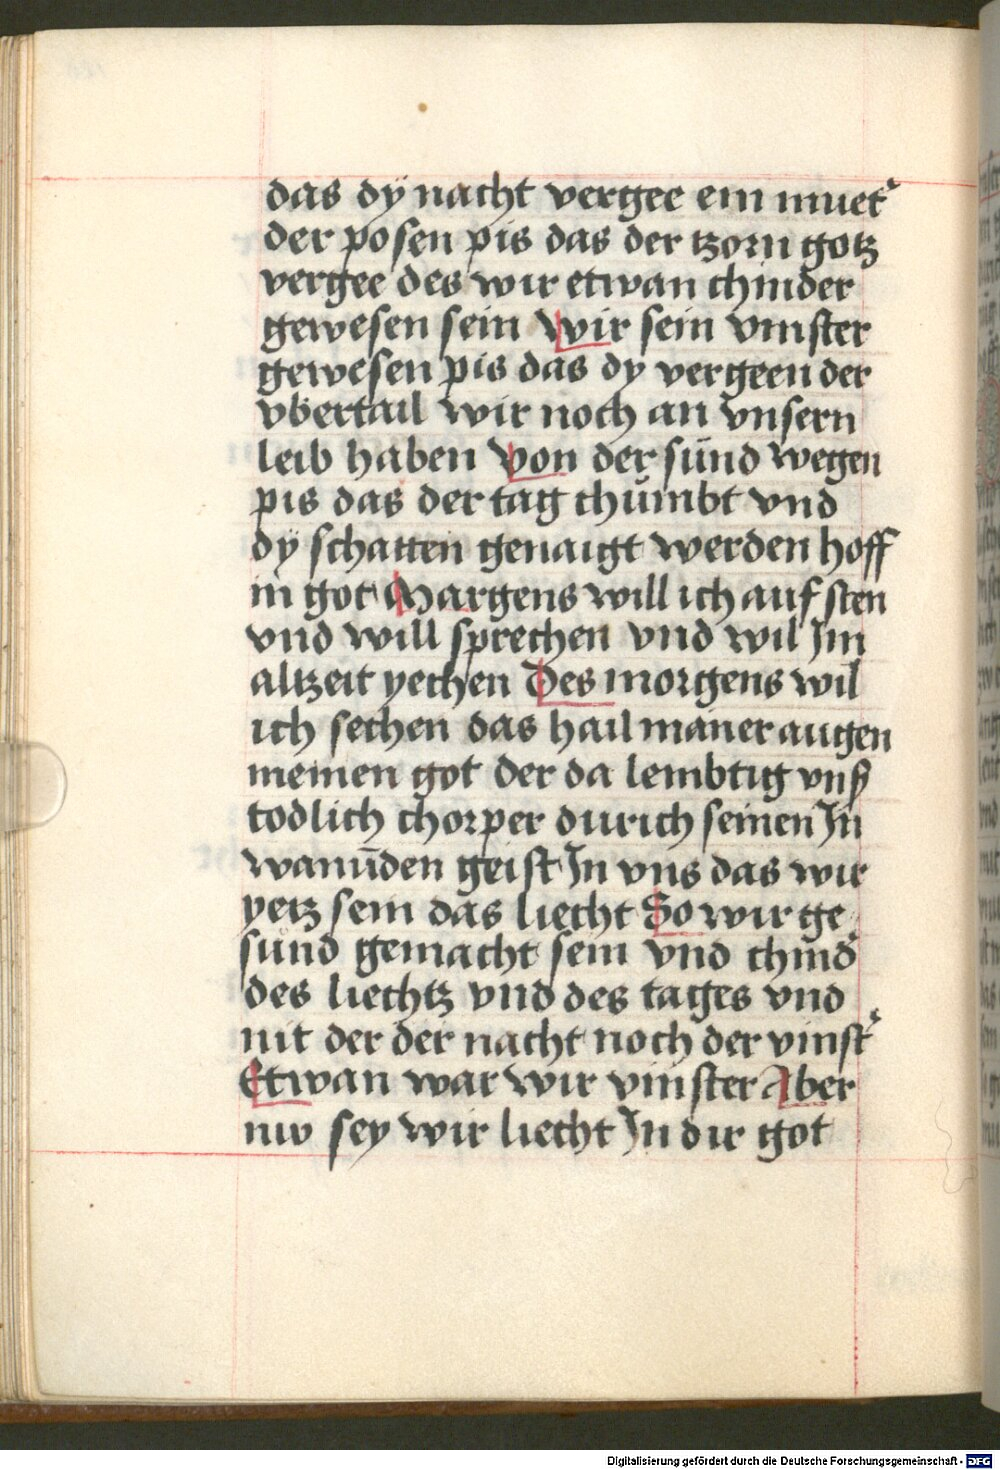 das dÿ nacht vergee ein muet'
der posen pis das der tzorn gotz
vergee des wir etwan chinder
gewesen sein Wir sein vinster
gewesen pis das dy vergeen der
vbertail wir noch an vnsern
leib haben Von der sünd wegen
pis das der tag chümbt vnd
dÿ schatten genaigt werden hoff
in got Margens will ich auf sten
vnd will sprechen vnd wil Im
altzeit yechen Des morgens wil
ich sechen das hail maner augen
meinen got der da lembtig vnß
todlich chorper durich seinen In
wanūden geist In vns das wir
yetz sein das liecht So wir ge
sünd gemacht sein vnd chind'
des liechtz vnd des tages vnd
nit der der nacht noch der vinst'
Etwan war wir vinster Aber
nw sey wir liecht In dir got
Digitalisierung gefördert durch die Deutsche Forschungsgemeinschaft - DFG